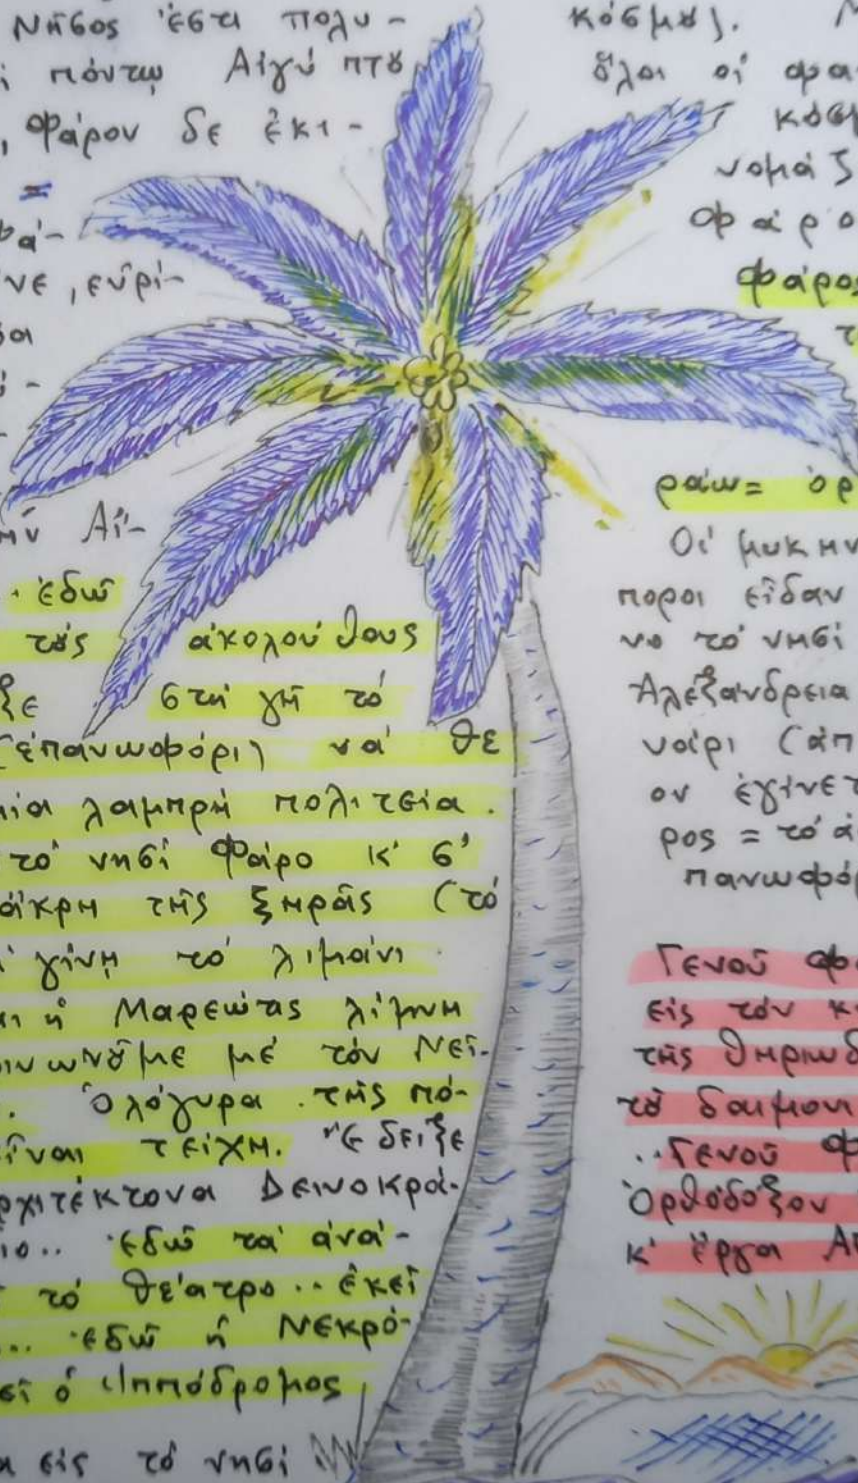 Νῆσος ἔστι πολυ-
πόντῳ Αἰγύπτου
, Φάρον δε ἑ κι-
=
νε, εὑρί-
ήν Αἰ-
. ἐδῶ
τούς ἀκολούθους
ξε στή γῆ τό
(ἐπανωφόρι) νά θε
μία λαμπρή πολιτεία.
τό νησί Φάρο κ' σ'
ἄκρη τῆς ξηρᾶς (τό
γίνῃ τό λιμάνι.
ἡ Μαρεώτις λίμνη
με μέ τόν Νεῖ-
. Ὁλόγυρα τῆς πό-
τείχη. Ἔδειξε
ἀρχιτέκτονα Δεινοκρά-
.. ἐδῶ τά ἀνά-
τό θέατρο.. ἐκεῖ
... ἐδῶ ἡ Νεκρό-
ὁ Ἱππόδρομος
εἰς τό νησί
κόσμου).
ὅλοι οἱ φα
κόσμ
νομάζ
φάρο
φάρος
τ
ράω= ὁρ
Οἱ μυκην
ποροι εἶδαν
νο τό νησί
Ἀλεξάνδρεια
νάρι (ἀπ
ον ἐγίνετ
ρος = τό ἀ
πανωφόρ
Γενοῦ φα
εἰς τόν κ
τῆς θηριωδ
τοῦ δαιμονι
..Γενοῦ φ
Ὀρθόδοξον
κ' ἔργα Ἀπ